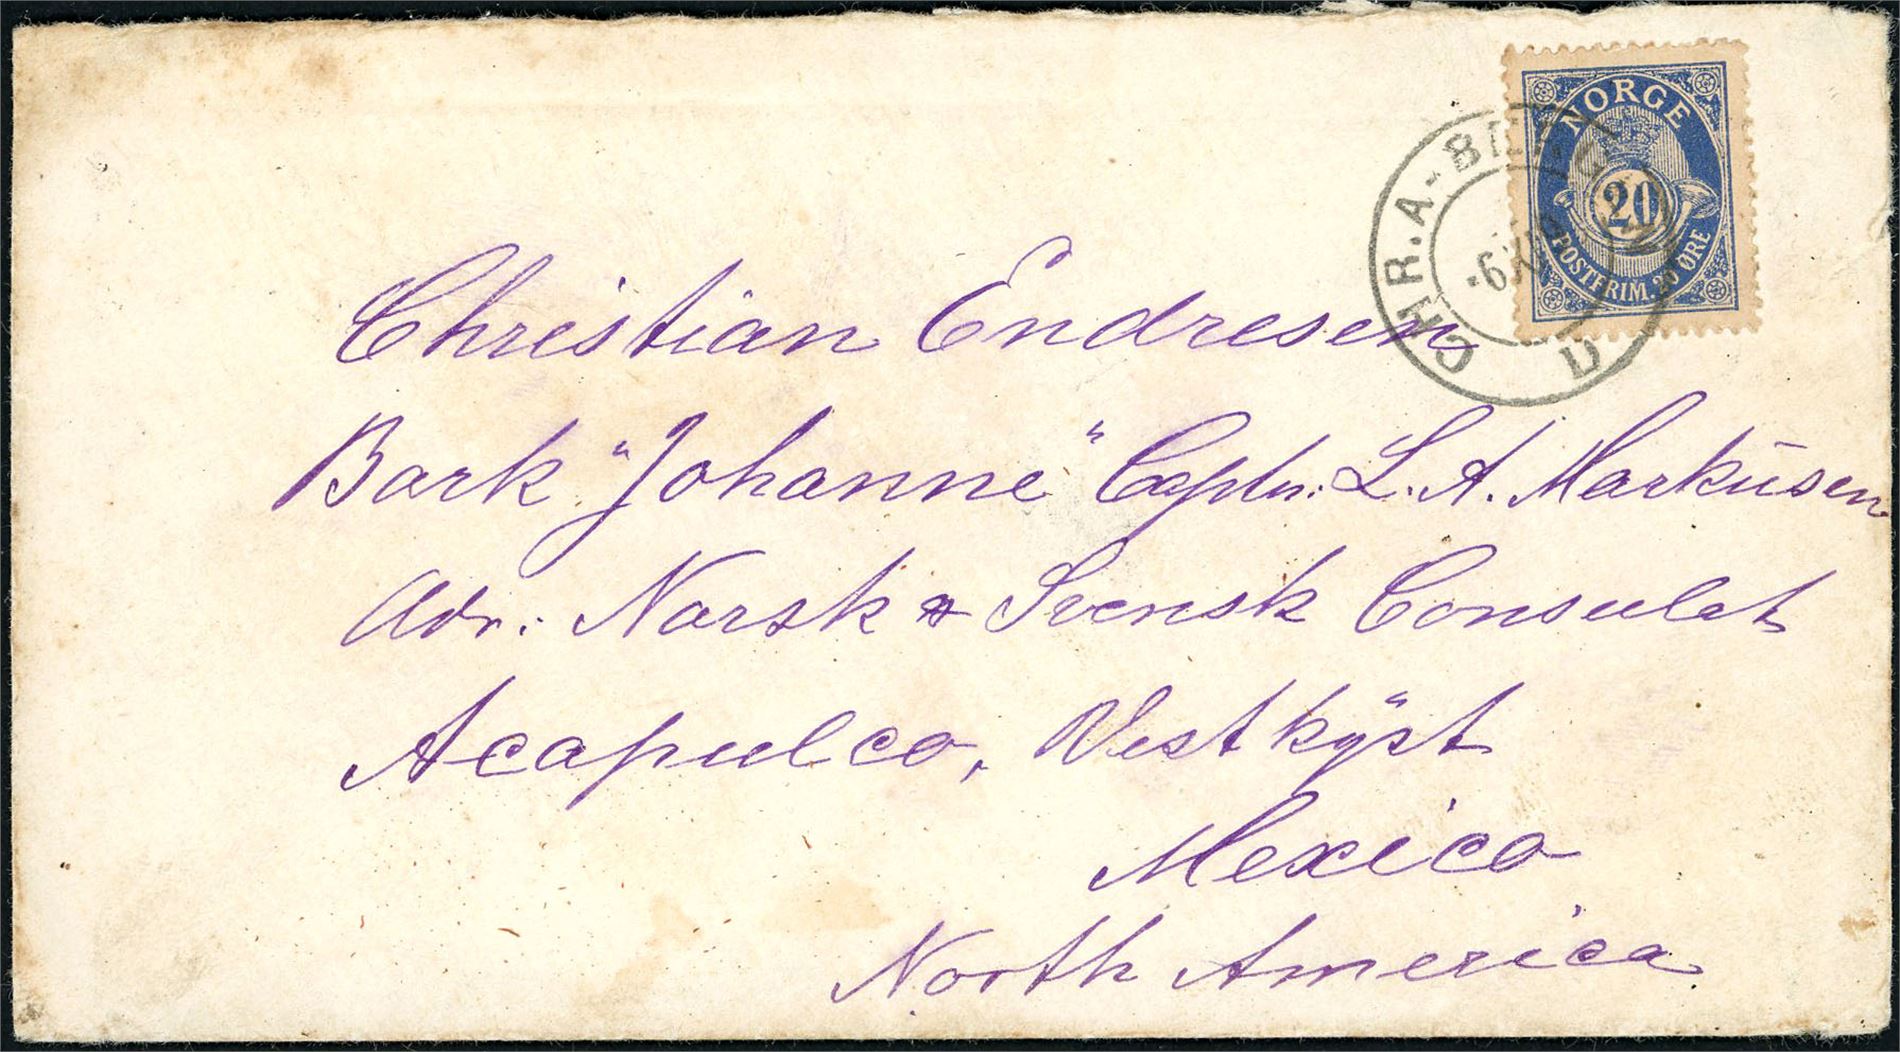 NORGE
20
POSTFRIM. 20 ØRE
CHR.A-
-6
D
Christian Endresen
Bark "Johanne" Captn: L. A. Markŭsen
Adr.: Norsk & Svensk Consulat
Acapulco, Vestkÿst
Mexico
North America